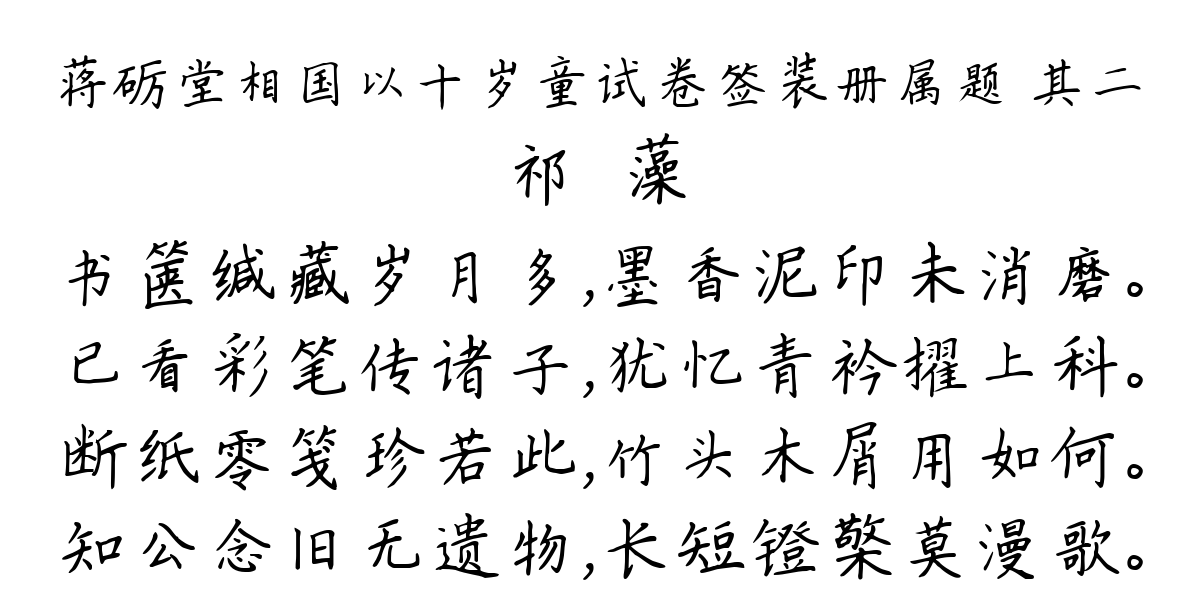 蒋砺堂相国以十岁童试卷签装册属题 其二
祁 藻
书箧缄藏岁月多,墨香泥印未消磨。
已看彩笔传诸子,犹忆青衿擢上科。
断纸零笺珍若此,竹头木屑用如何。
知公念旧无遗物,长短镫檠莫漫歌。